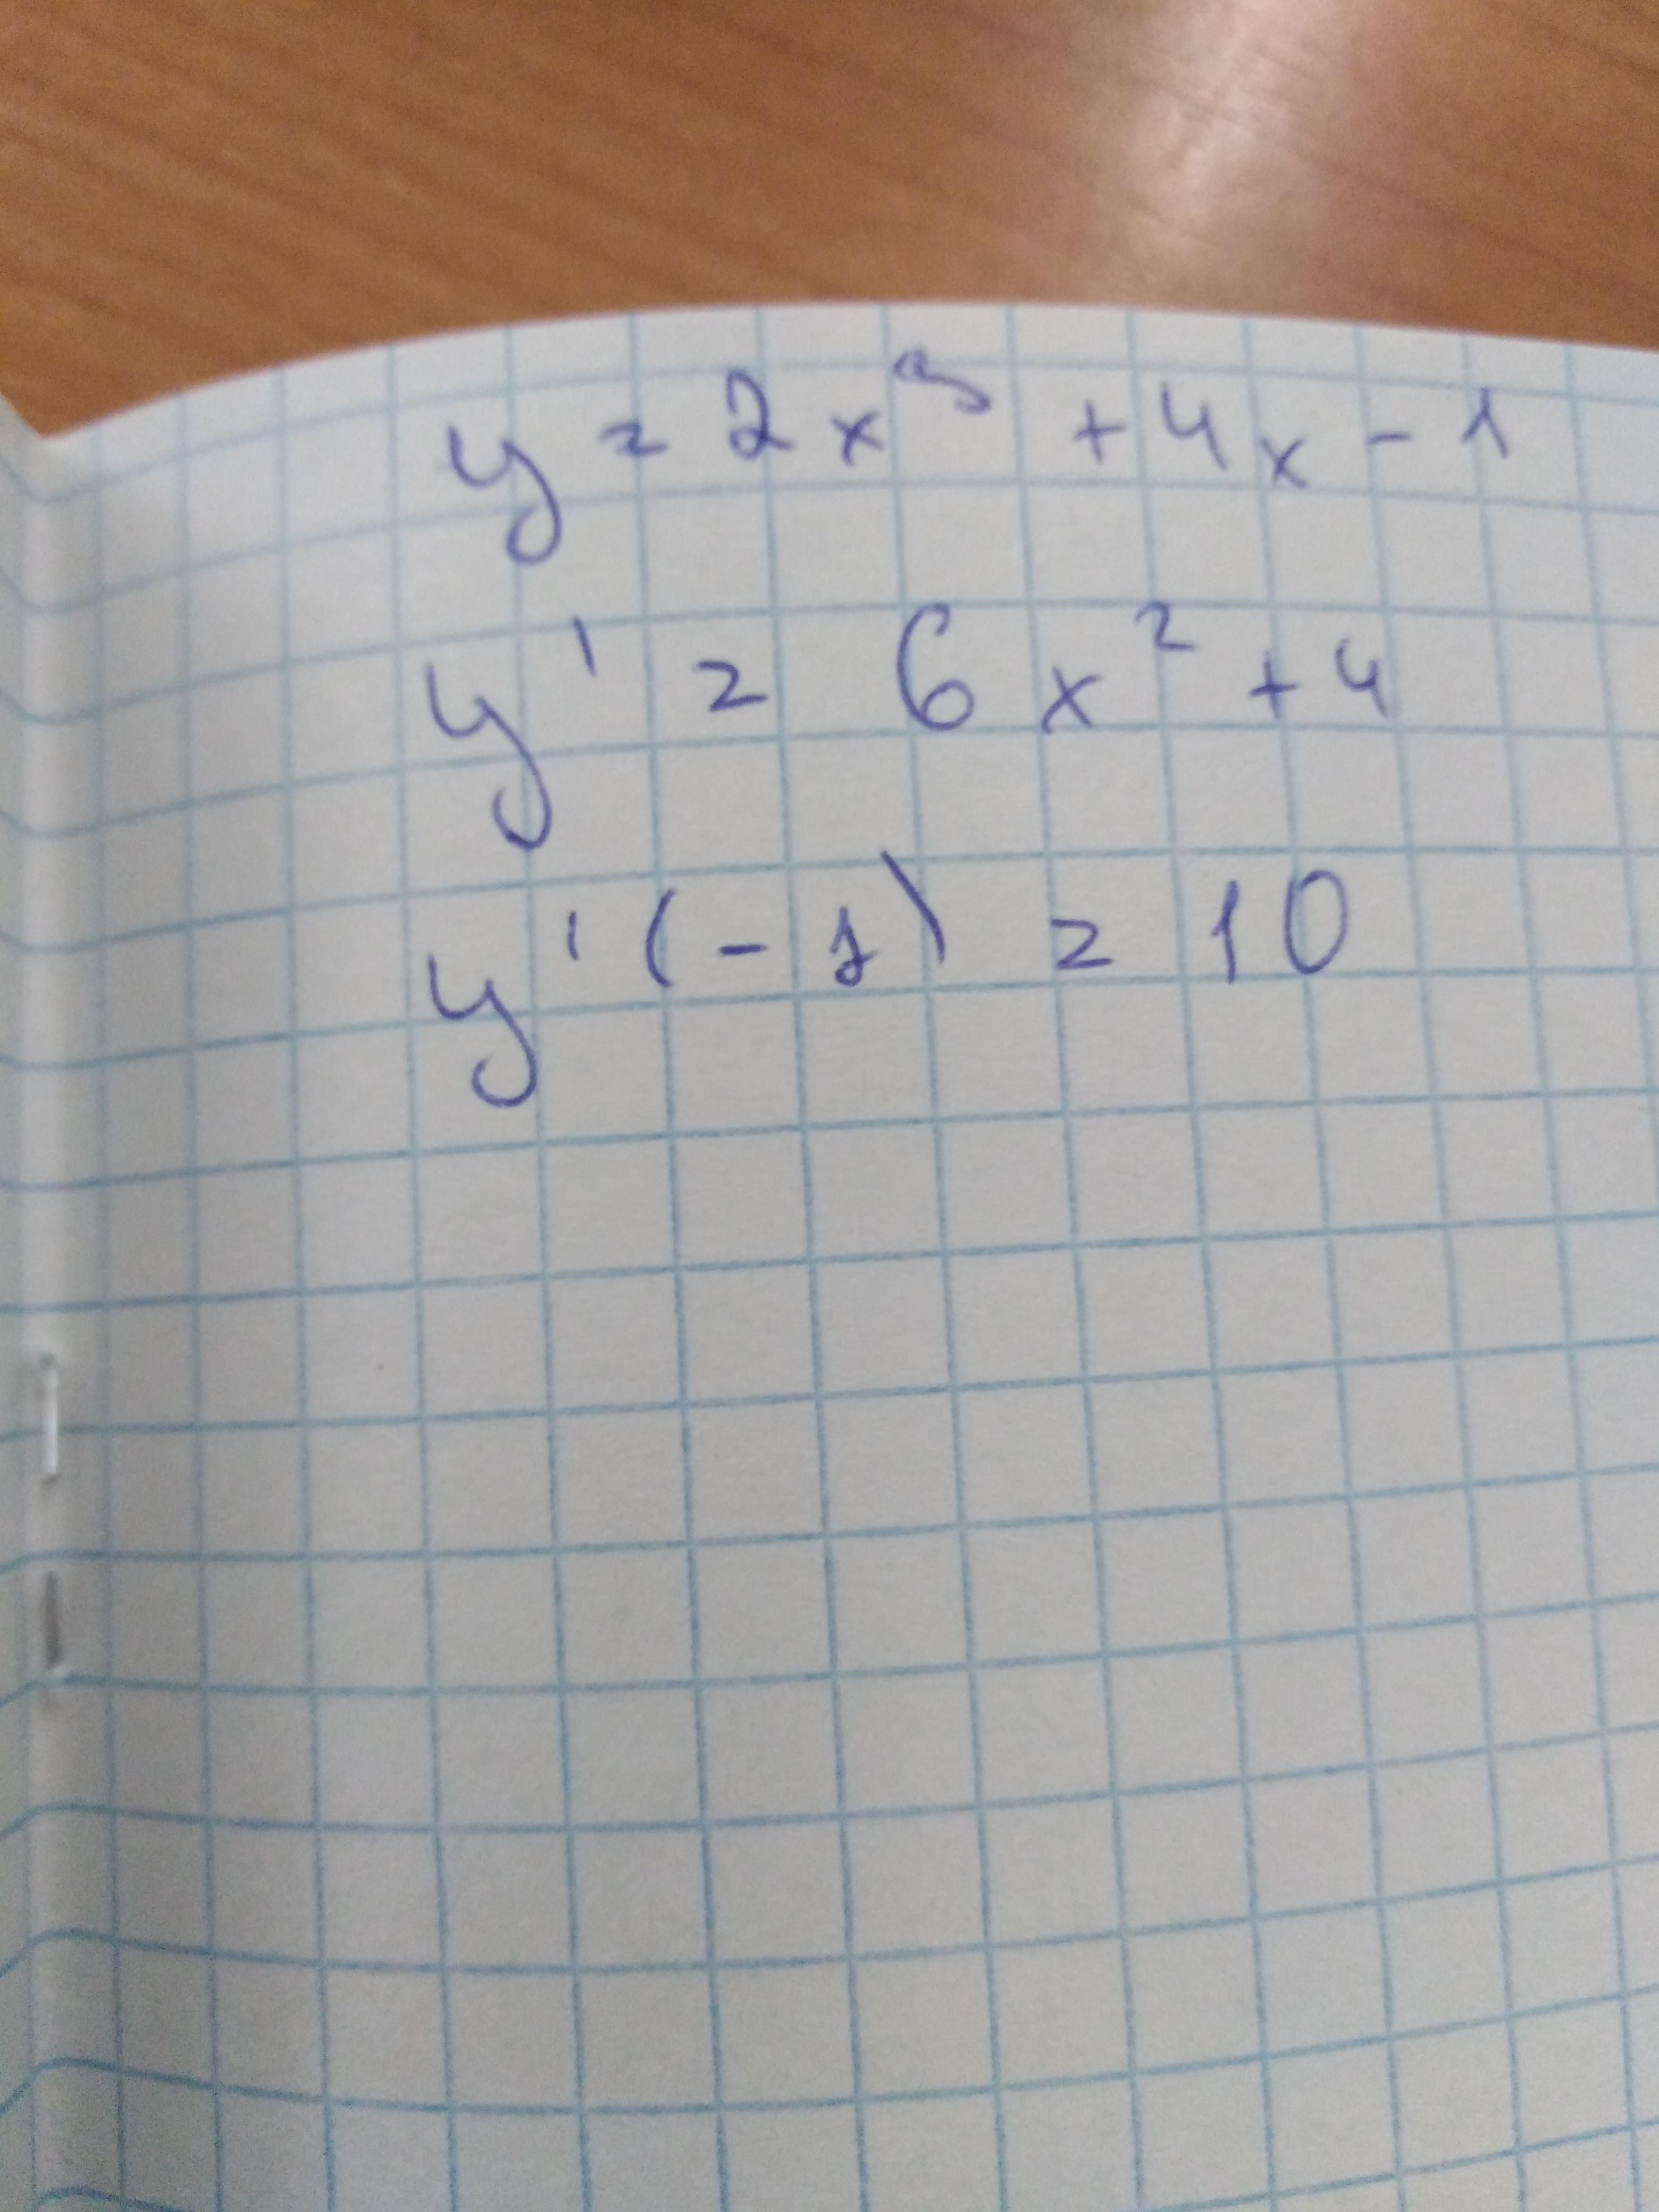 y = 2x³ + 4x - 1
y' = 6x² + 4
y'(-1) = 10